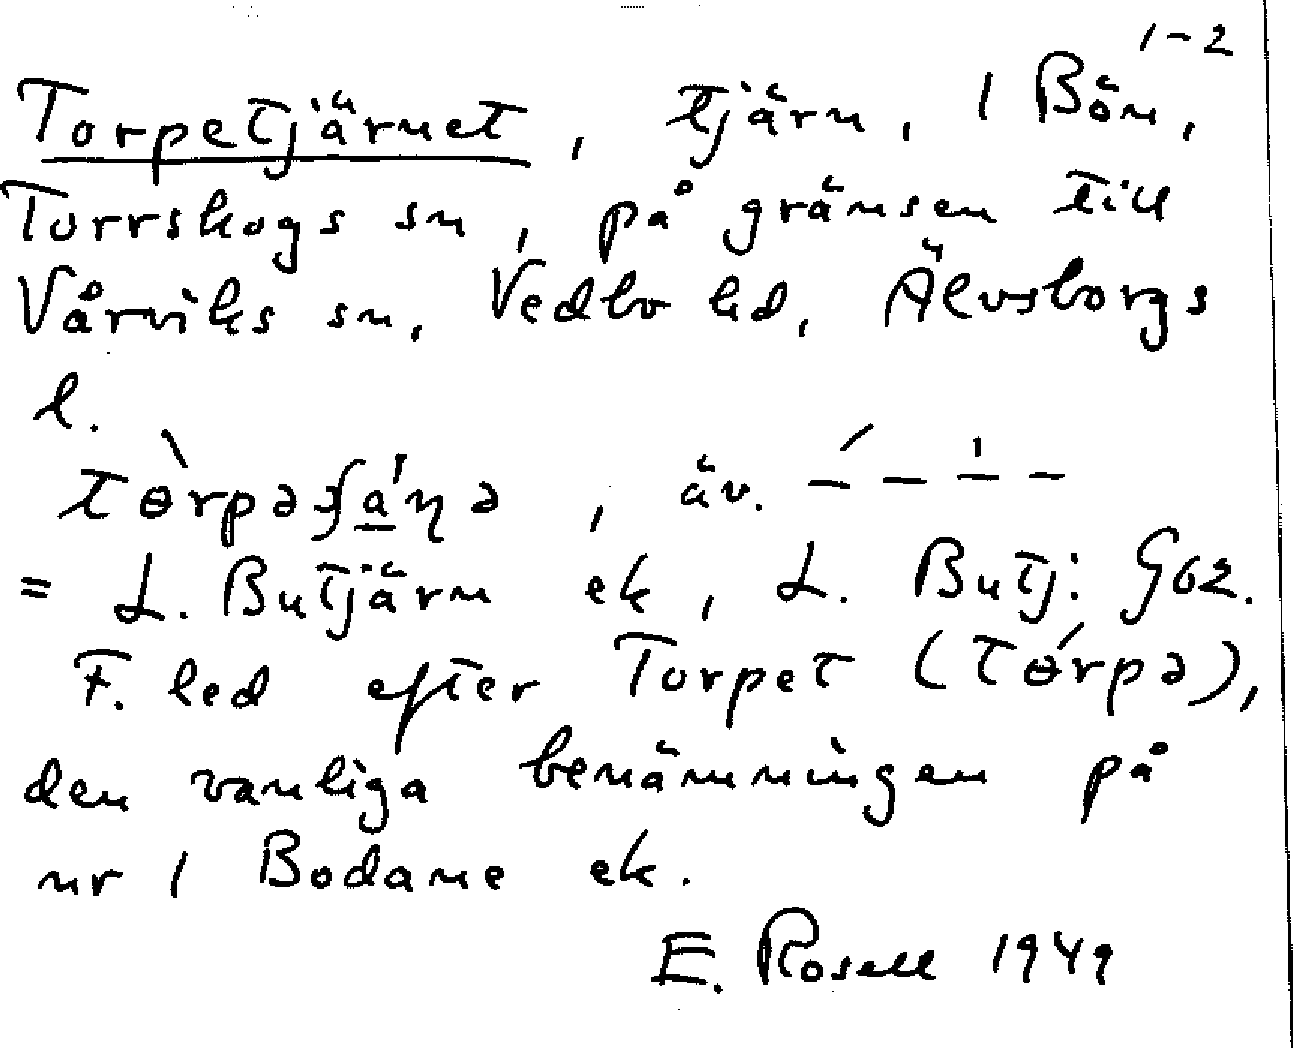 1-2
Torpetjärnet, tjärn, 1 Bön,
Torrskogs sn, på gränsen till
Vårviks sn, Vedbo hd, Älvsborgs
l.
, äv. – – – –
= L. Butjärn ek, L. Butj: G62.
F. led efter Torpet (tɵ́rpə),
den vanliga benämningen på
nr 1 Bodane ek.
E. Rosell 1949